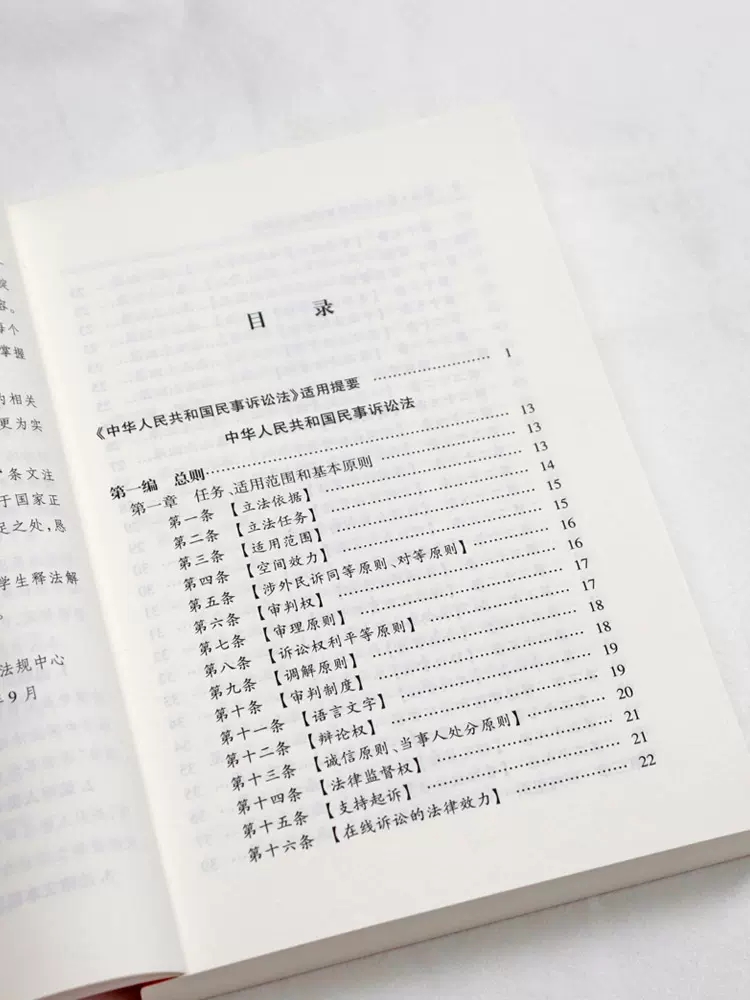 容。
每个
掌握
的相关
更为实
条文注
于国家正
足之处,恳
学生释法解
。
法规中心
年9月
目 录
《中华人民共和国民事诉讼法》适用提要 …… 1
中华人民共和国民事诉讼法
第一编 总则 …… 13
第一章 任务、适用范围和基本原则 …… 13
第一条 【立法依据】 …… 13
第二条 【立法任务】 …… 14
第三条 【适用范围】 …… 15
第四条 【空间效力】 …… 15
第五条 【涉外民诉同等原则、对等原则】 …… 16
第六条 【审判权】 …… 16
第七条 【审理原则】 …… 17
第八条 【诉讼权利平等原则】 …… 17
第九条 【调解原则】 …… 18
第十条 【审判制度】 …… 18
第十一条 【语言文字】 …… 19
第十二条 【辩论权】 …… 19
第十三条 【诚信原则、当事人处分原则】 …… 20
第十四条 【法律监督权】 …… 21
第十五条 【支持起诉】 …… 21
第十六条 【在线诉讼的法律效力】 …… 22